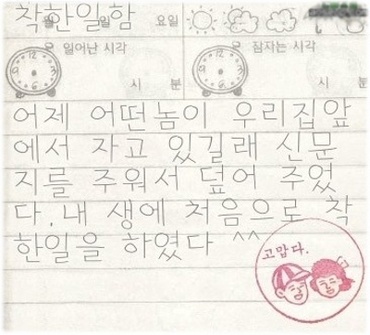 착한일함
월 일 요일
일어난 시각
잠자는 시각
12
3
6
9
12
3
6
9
시 분
시 분
어제 어떤놈이 우리집앞
에서 자고 있길래 신문
지를 주워서 덮어 주었
다.내 생에 처음으로 착
한일을 하였다 ^^
고맙다.